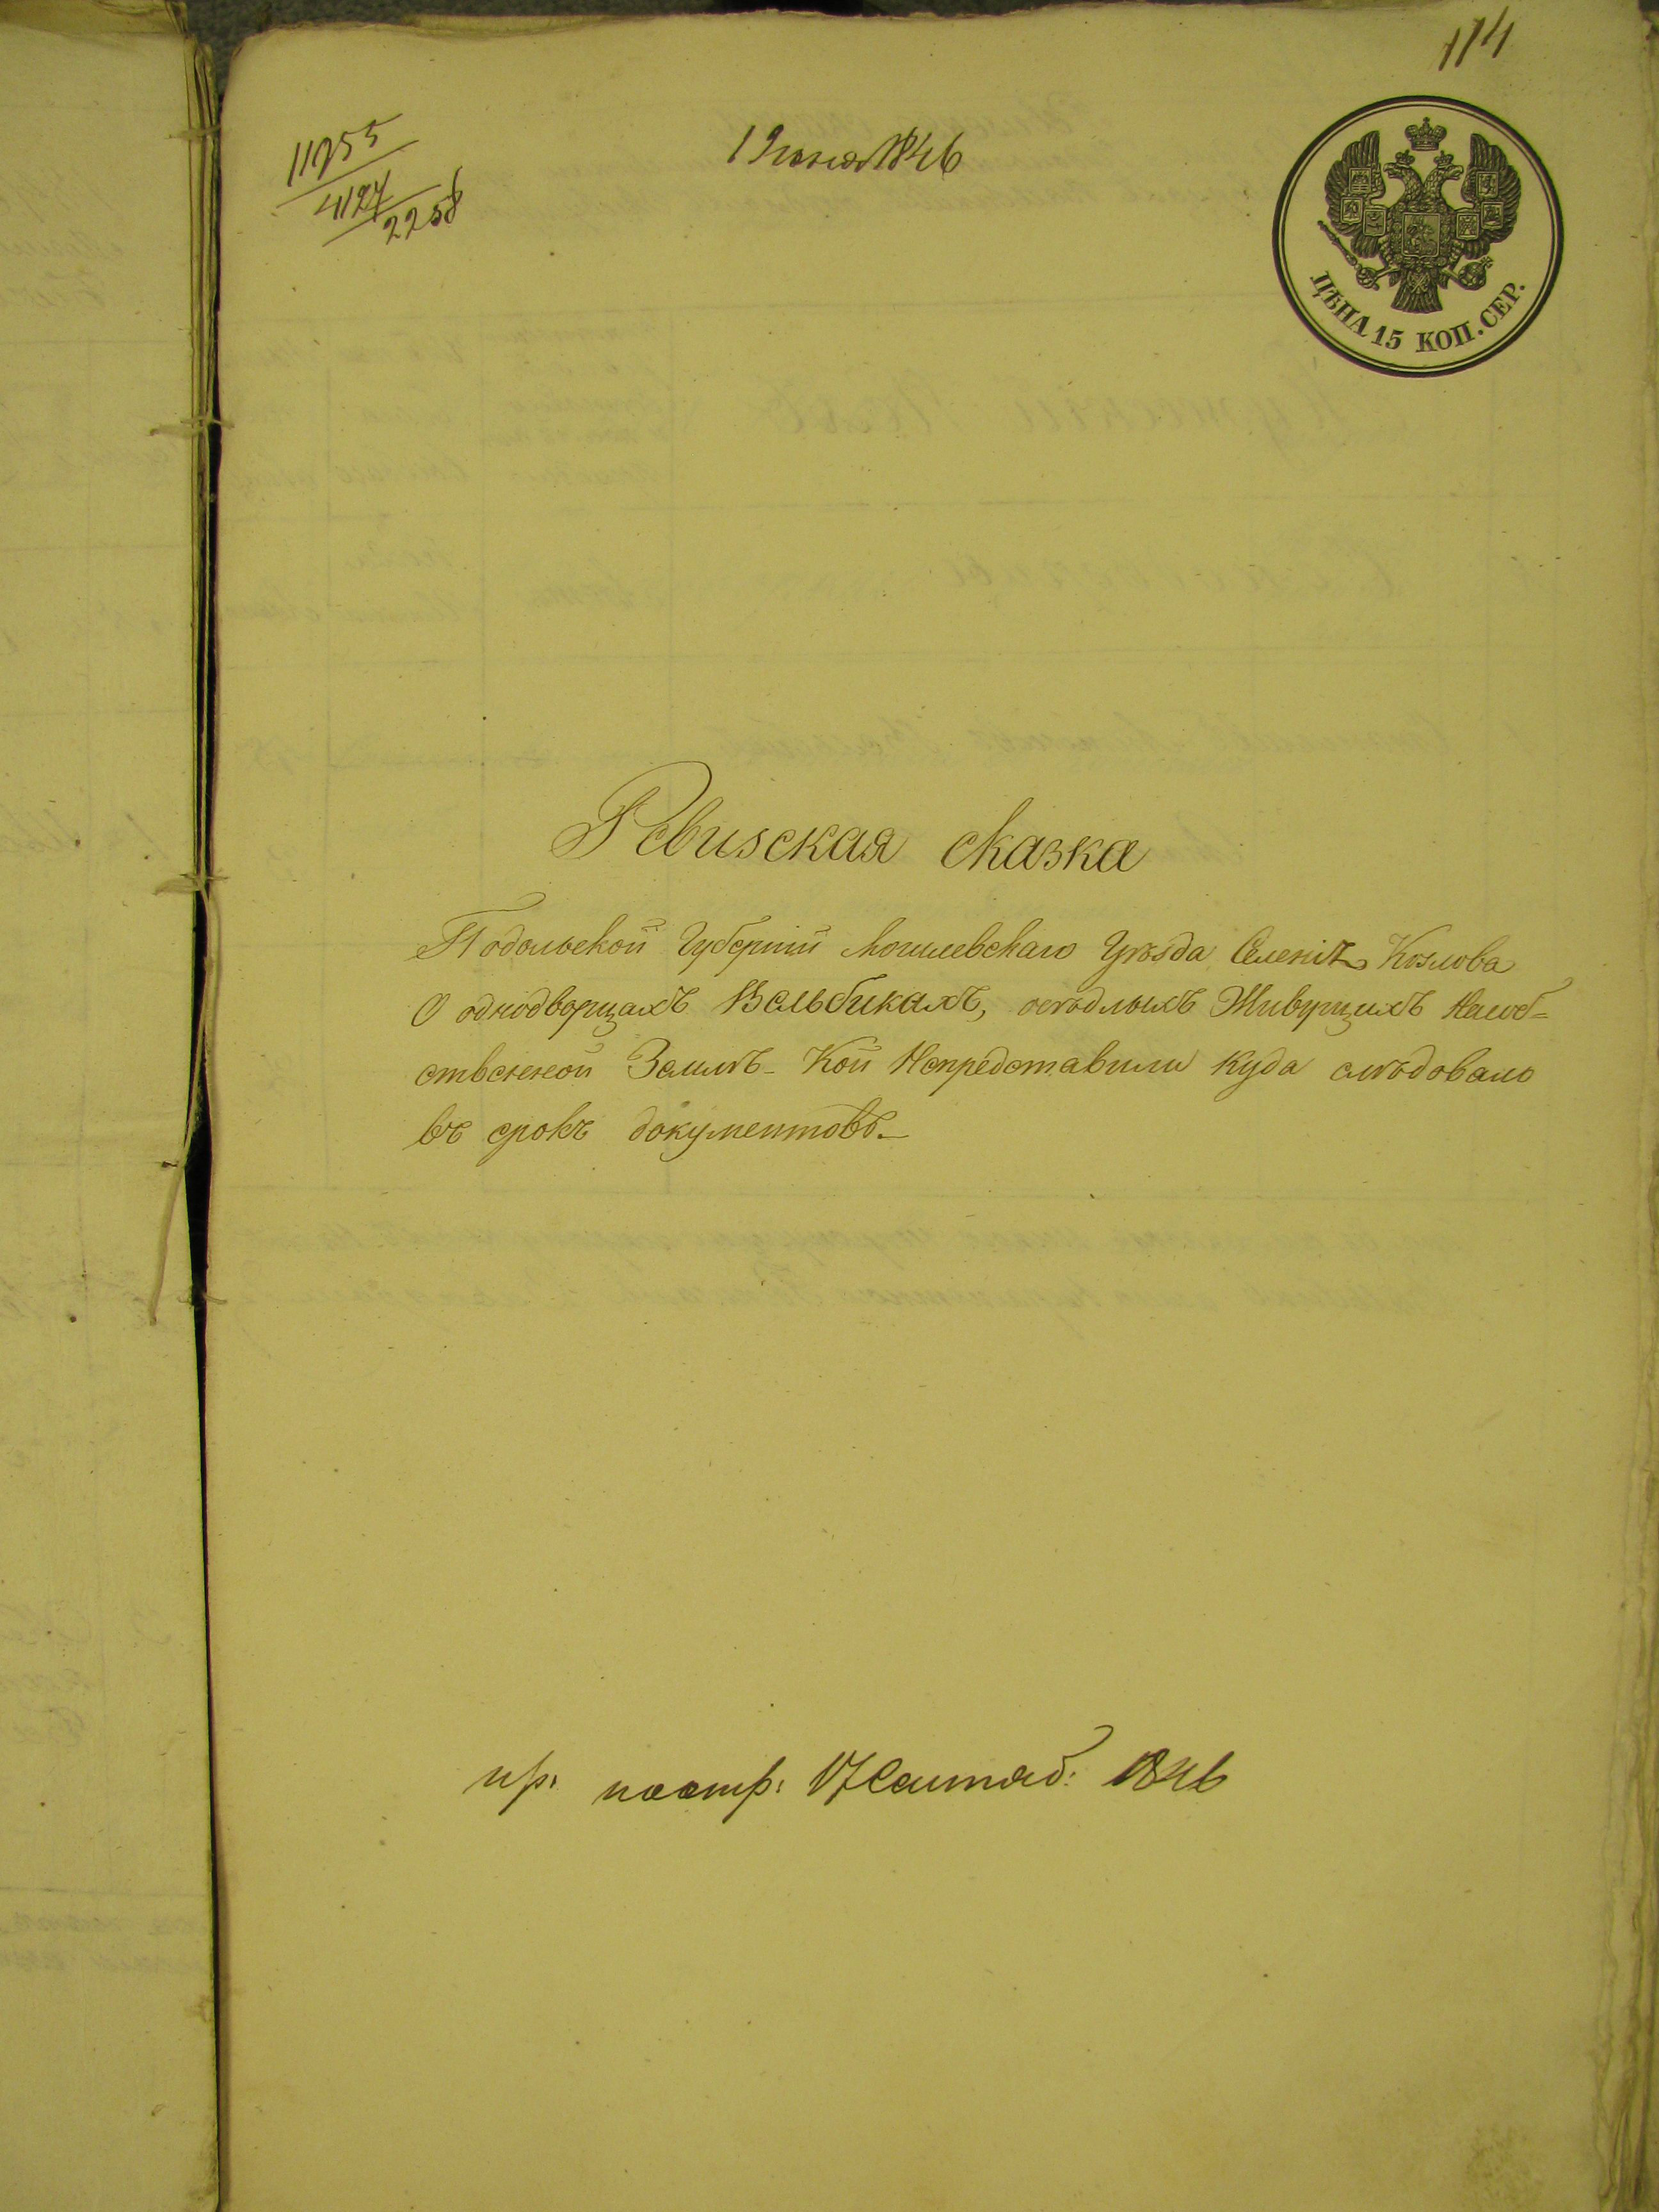 114
11255
4127
2258
1 Июня 1846
ЦѢНА 15 КОП. СЕР.
Ревизская сказка
Подольской Губерніи Могилевскаго Уѣзда Селенія Козлова
О однодворцахъ Вельбикахъ, осѣдлыхъ Живущихъ На соб=
ственной Землѣ - Кои Непредставили куда слѣдовало
въ срокъ документовъ.
17 1846